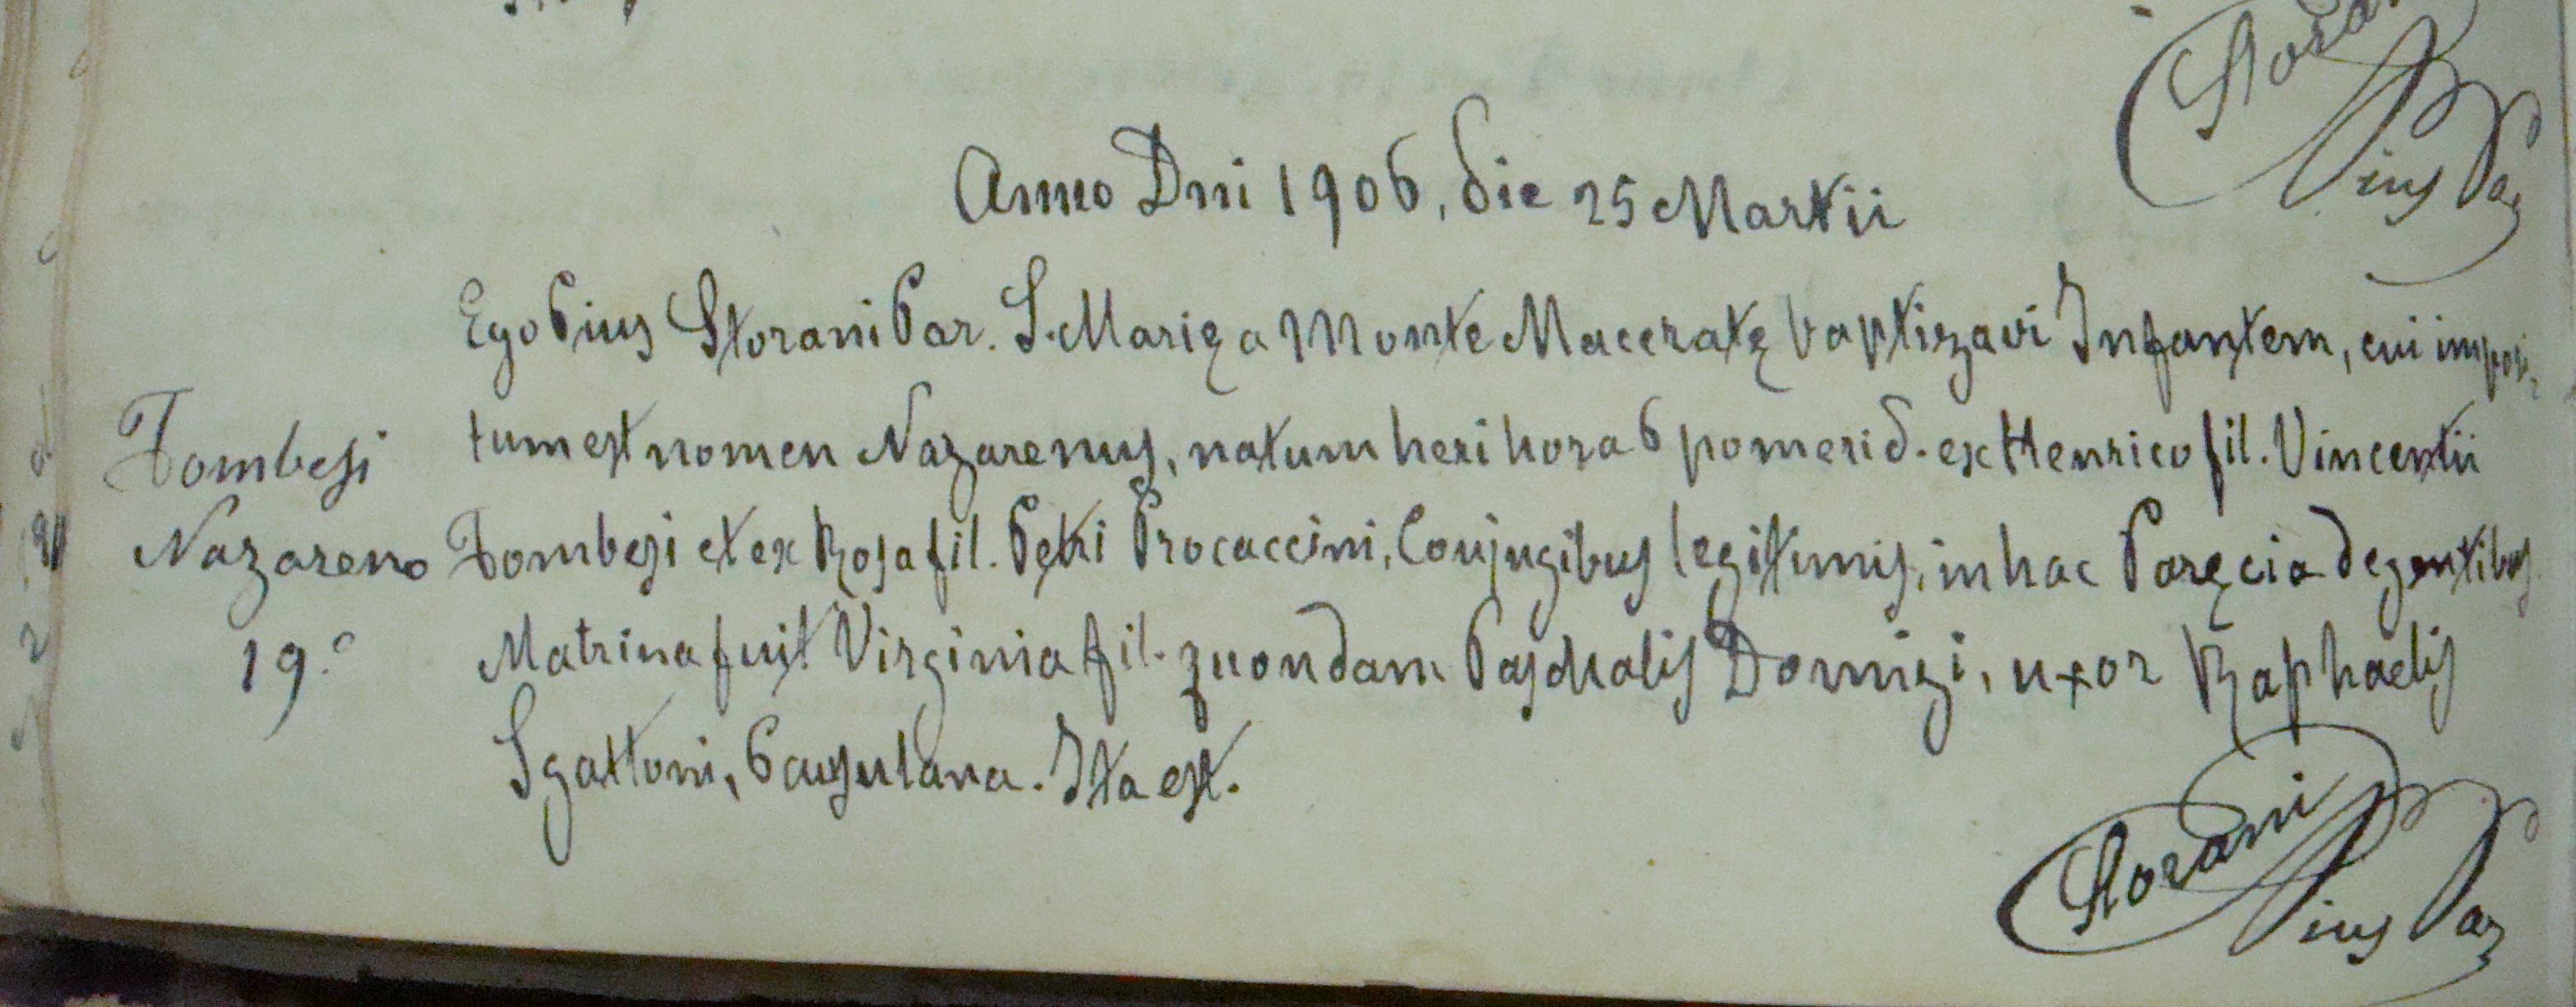 Stora
Pius Par
Anno Dni 1906, die 25 Martii
Ego Pius Storani Par. S. Marię a Monte Maceratę baptizavi Infantem, cui imposi=
tum est nomen Nazarenus, natum heri hora 6 pomerid. ex Henrico fil. Vincentii
Tombesi
Nazareno
19.º
Tombesi et ex Rosa fil. Petri Procaccini, Conjugibus legitimis, in hac Paręcia degentibus
Matrina fuit Virginia fil. quondam Paschalis Domizi, uxor Raphaelis
Sgattoni, Pausulana. Ita est.
Storani
Pius Par